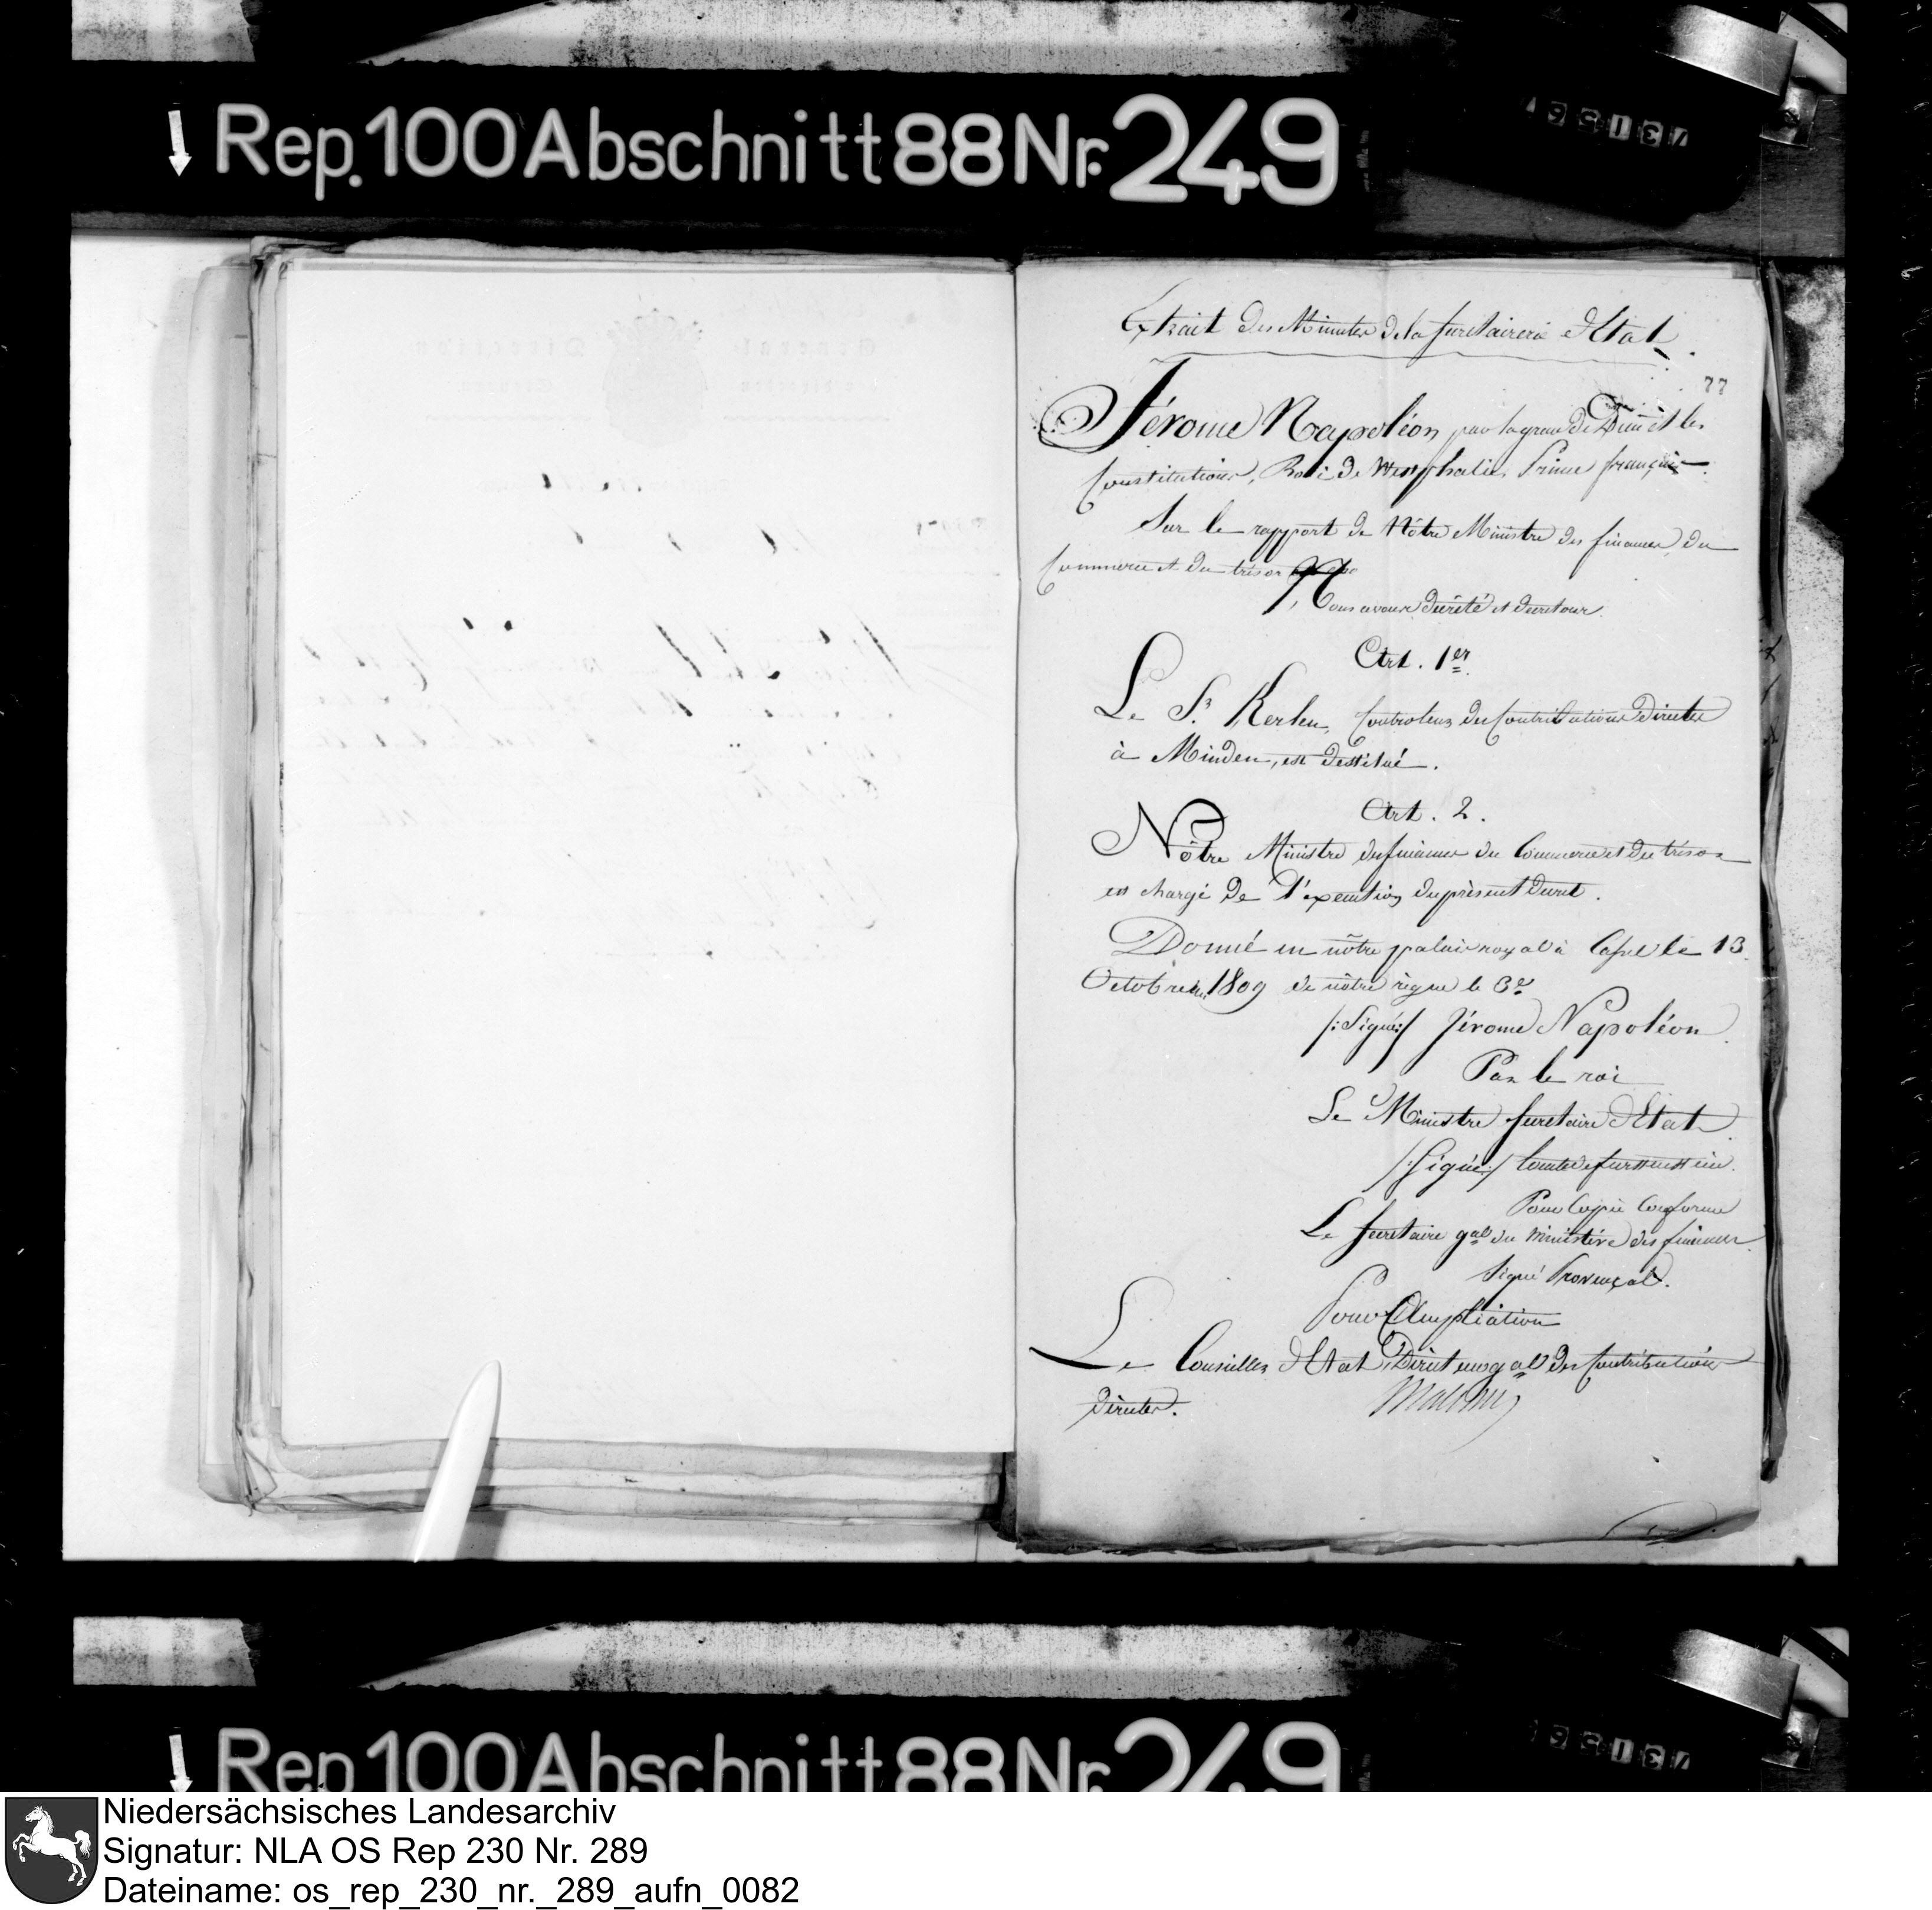 Rep. 100 Abschnitt 88 Nr. 249
Extrait des Minutes de la secretairerie d'Etat
77
Jérome Napoléon par la grace de Dieu et les
Constitutions, Roi de Westphalie, Prince français
Sur le rapport de Nôtre Ministre des finances, du
Commerce et du trésor
Nous avons decrété et decretons
Art. 1er
Le Sr. Kerlen, Controleur des Contributions Directes
à Minden, est destitué.
Art. 2.
Nôtre Ministre des finances du Commerce et du trésor
est chargé de l'execution du présent decret.
Donné en nôtre palais royal à Cassel le 13
Octobre 1809 de nôtre règne le 3e
/: Signé :/ Jérome Napoléon
Par le roi
Le Ministre Secretaire d'Etat
/: Signé :/ Comte de furstenstein.
Pour Copie Conforme
Le Secretaire gal du ministère des finances
Signé Provençal.
Pour Ampliation
Le Conseiller d'Etat Directeur gal des Contributions
directes. Malchus
Rep 100 Abschnitt 88 Nr. 249
Niedersächsisches Landesarchiv
Signatur: NLA OS Rep 230 Nr. 289
Dateiname: os_rep_230_nr._289_aufn_0082